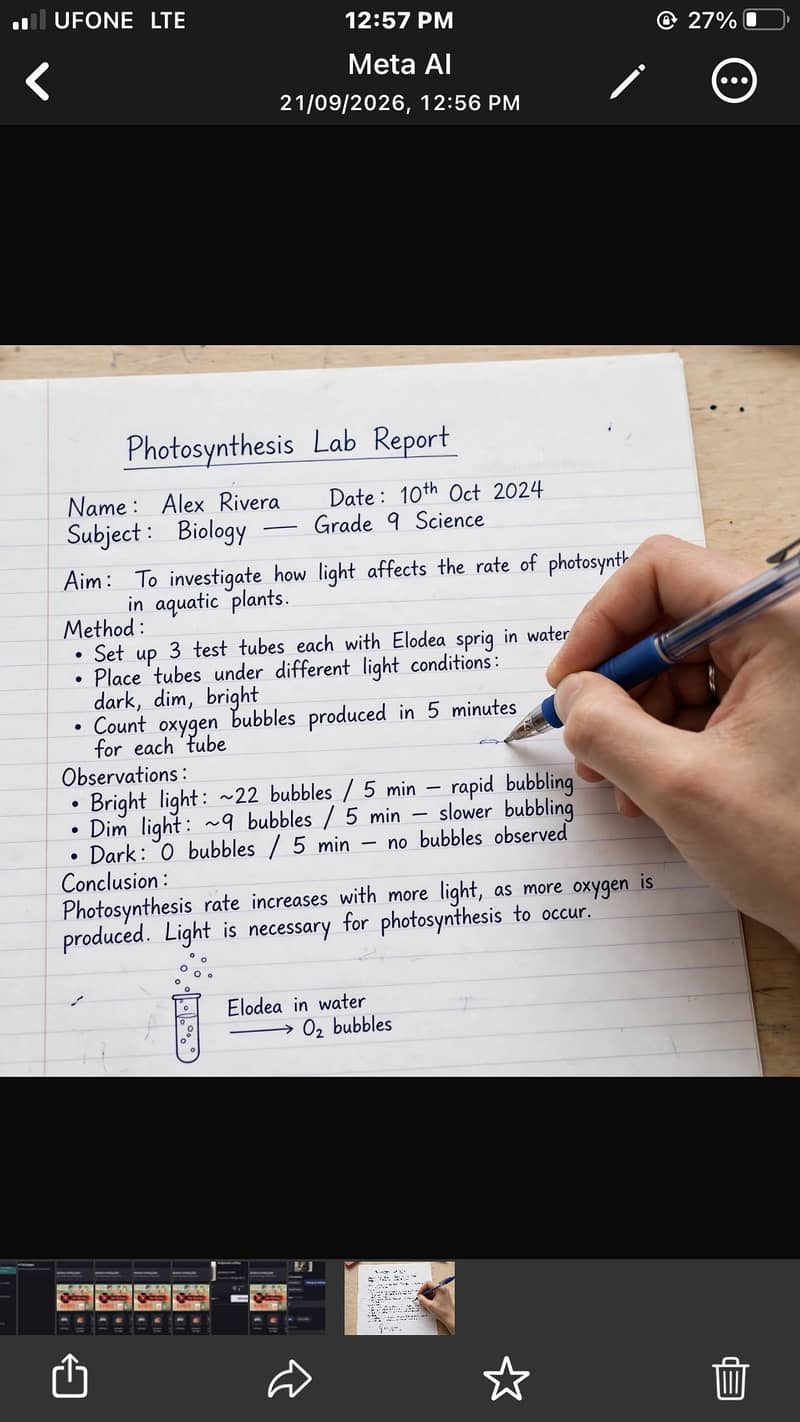 UFONE LTE
12:57 PM
27%
Meta AI
21/09/2026, 12:56 PM
Photosynthesis Lab Report
Name: Alex Rivera Date: 10th Oct 2024
Subject: Biology — Grade 9 Science
Aim: To investigate how light affects the rate of photosynth
in aquatic plants.
Method:
• Set up 3 test tubes each with Elodea sprig in water
• Place tubes under different light conditions:
dark, dim, bright
• Count oxygen bubbles produced in 5 minutes
for each tube
Observations:
• Bright light: ~22 bubbles / 5 min — rapid bubbling
• Dim light: ~9 bubbles / 5 min — slower bubbling
• Dark: 0 bubbles / 5 min — no bubbles observed
Conclusion:
Photosynthesis rate increases with more light, as more oxygen is
produced. Light is necessary for photosynthesis to occur.
Elodea in water
⟶ O₂ bubbles